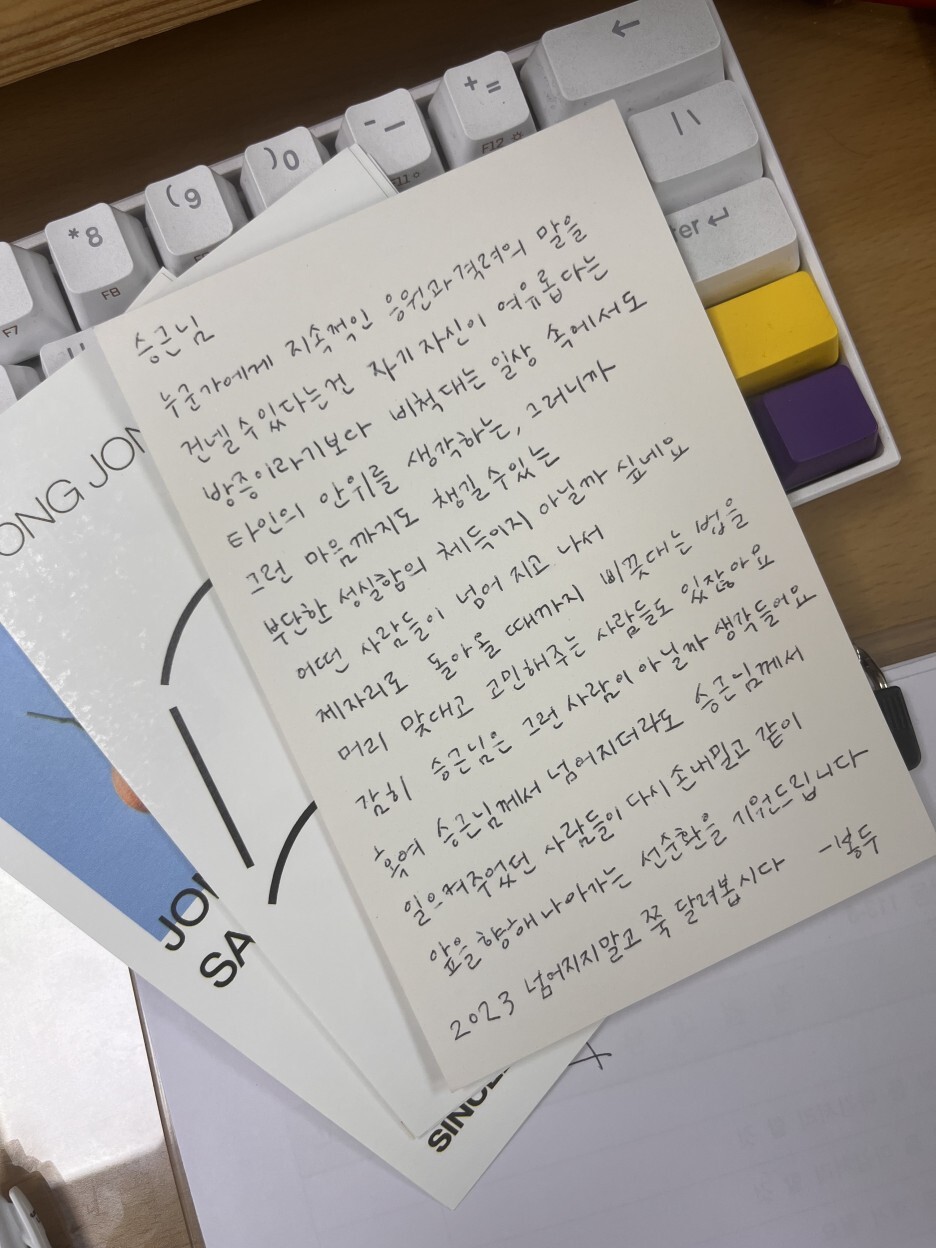 ←
+ =
- —
) 0
( 9
* 8
F12
F11
F8
F7
| \
er ↵
승근님
누군가에게 지속적인 응원과 격려의 말을
건넬 수 있다는건 자기 자신이 여유롭다는
방증이라기보다 비척대는 일상 속에서도
타인의 안위를 생각하는, 그러니까
그런 마음까지도 챙길 수 있는
부단한 성실함의 체득이지 아닐까 싶네요
어떤 사람들이 넘어 지고 나서
제자리로 돌아올 때까지 삐끗대는 법을
머리 맞대고 고민해주는 사람들도 있잖아요
감히 승근님은 그런 사람이 아닐까 생각들어요
혹여 승근님께서 넘어지더라도 승근님께서
일으켜주었던 사람들이 다시 손내밀고 같이
앞을 향해 나아가는 선순환을 기원드립니다
2023 넘어지지말고 쭉 달려봅시다 -봉두
ONG JON
JON
SA
SINCE